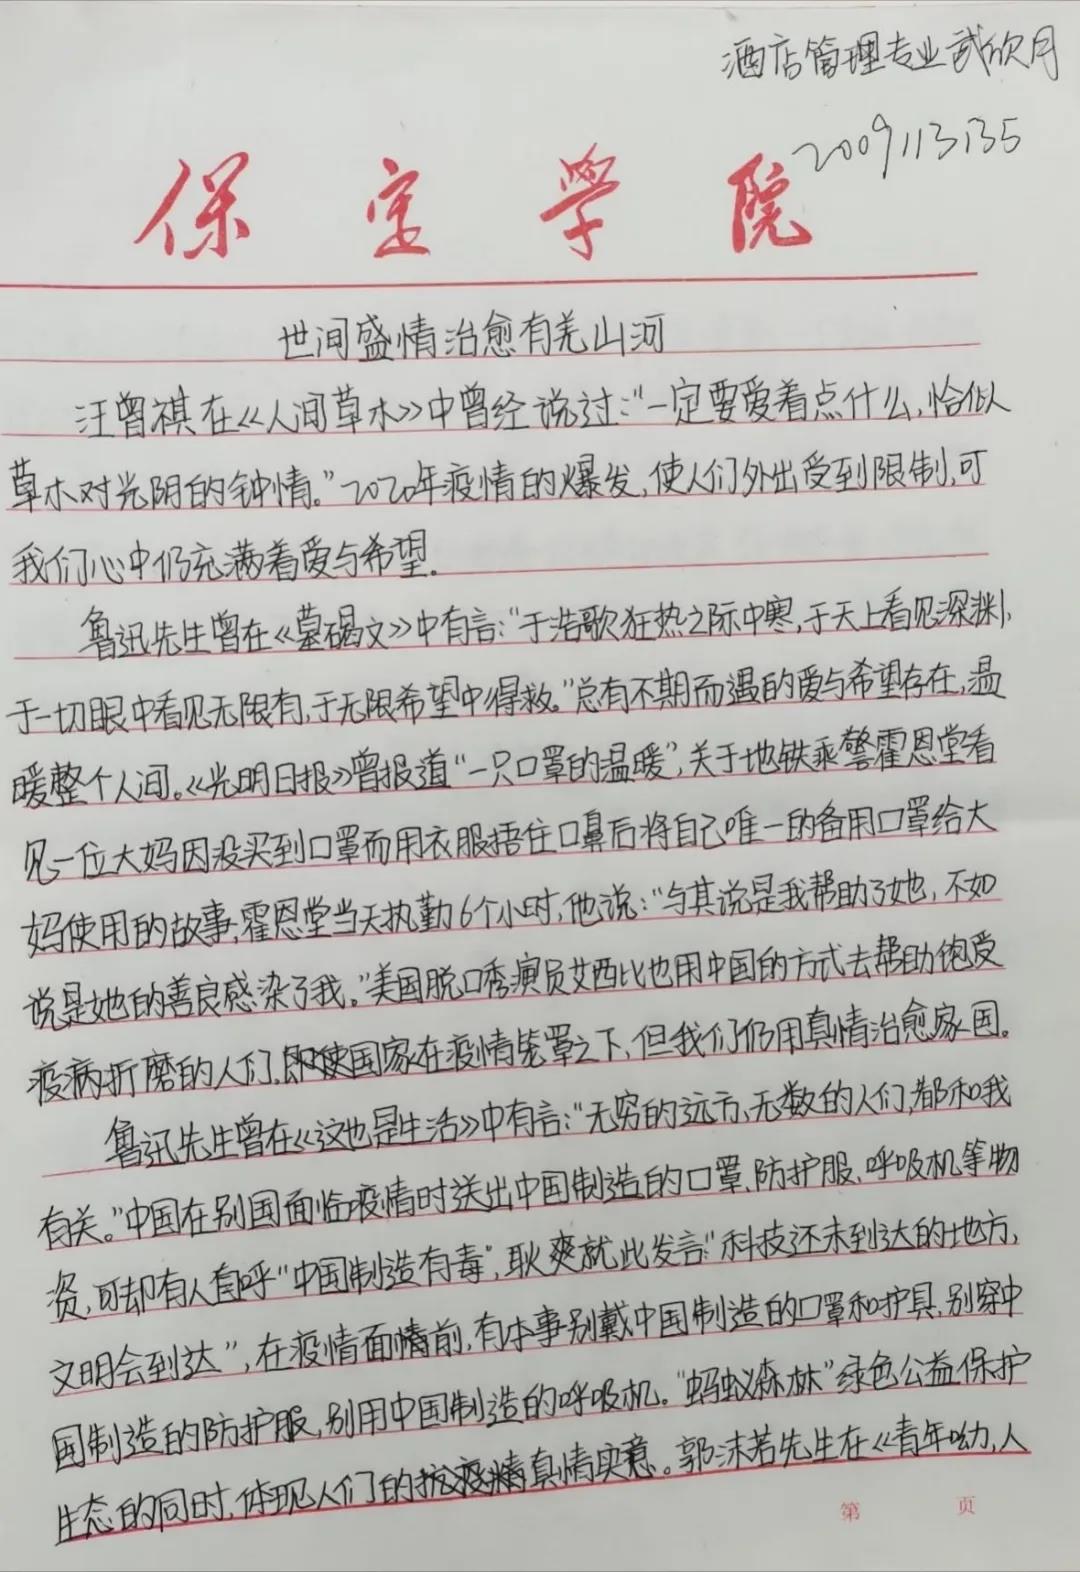 酒店管理专业武欣月
2009113135
保定学院
世间盛情治愈有羌山河
汪曾祺在《人间草木》中曾经说过:"一定要爱着点什么,恰似
草木对光阴的钟情。"2020年疫情的爆发,使人们外出受到限制,可
我们心中仍充满着爱与希望.
鲁迅先生曾在《墓碣文》中有言:"于浩歌狂热之际中寒,于天上看见深渊,
于一切眼中看见无限有,于无限希望中得救。"总有不期而遇的爱与希望存在,温
暖整个人间。《光明日报》曾报道"一只口罩的温暖",关于地铁乘警霍恩堂看
见一位大妈因没买到口罩而用衣服捂住口鼻后将自己唯一的备用口罩给大
妈使用的故事,霍恩堂当天执勤6个小时,他说:"与其说是我帮助了她,不如
说是她的善良感染了我。"美国脱口秀演员艾西比也用中国的方式去帮助饱受
疫病折磨的人们.即使国家在疫情笼罩之下,但我们仍用真情治愈家国。
鲁迅先生曾在《这也是生活》中有言:"无穷的远方,无数的人们,都和我
有关。"中国在别国面临疫情时送出中国制造的口罩、防护服、呼吸机等物
资,可却有人自呼"中国制造有毒",耿爽就此发言:"科技还未到达的地方,
文明会到达",在疫情面前,有本事别戴中国制造的口罩和护具,别穿中
国制造的防护服,别用中国制造的呼吸机。"蚂蚁森林"绿色公益保护
生态的同时,体现人们的抗疫真情实意。郭沫若先生在《青年呦,人
第 页